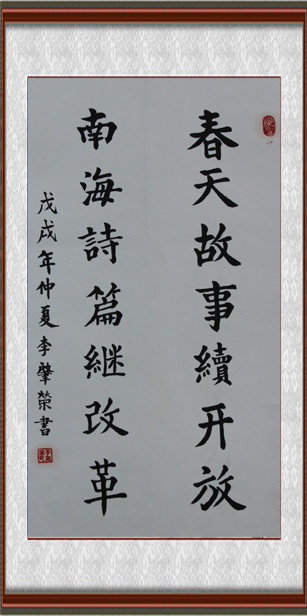 春天故事續开放
南海詩篇继改革
戊戌年仲夏李肇荣書